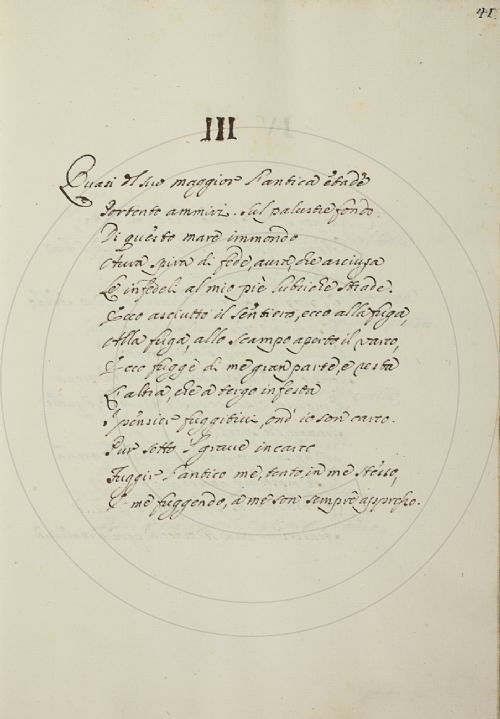 41
III
Quasi del suo maggior l'antica etade
Portento ammiri. Sul palustre fondo
Di questo mare immondo
Aura spira di fede, aura, che asciuga
Le infedeli al mio piè lubriche strade.
Ecco asciutto il sentiero, ecco alla fuga,
Alla fuga, allo scampo aperto il varco,
E ecco fugge di me gran parte, e resta
L'altra, che a tergo infesta
I pensier fuggitivi, ond' io son carco.
Pur sotto il grave incarco
Fuggir l'antico me, tento, in me stesso,
E me fuggendo, a me son sempre appresso.